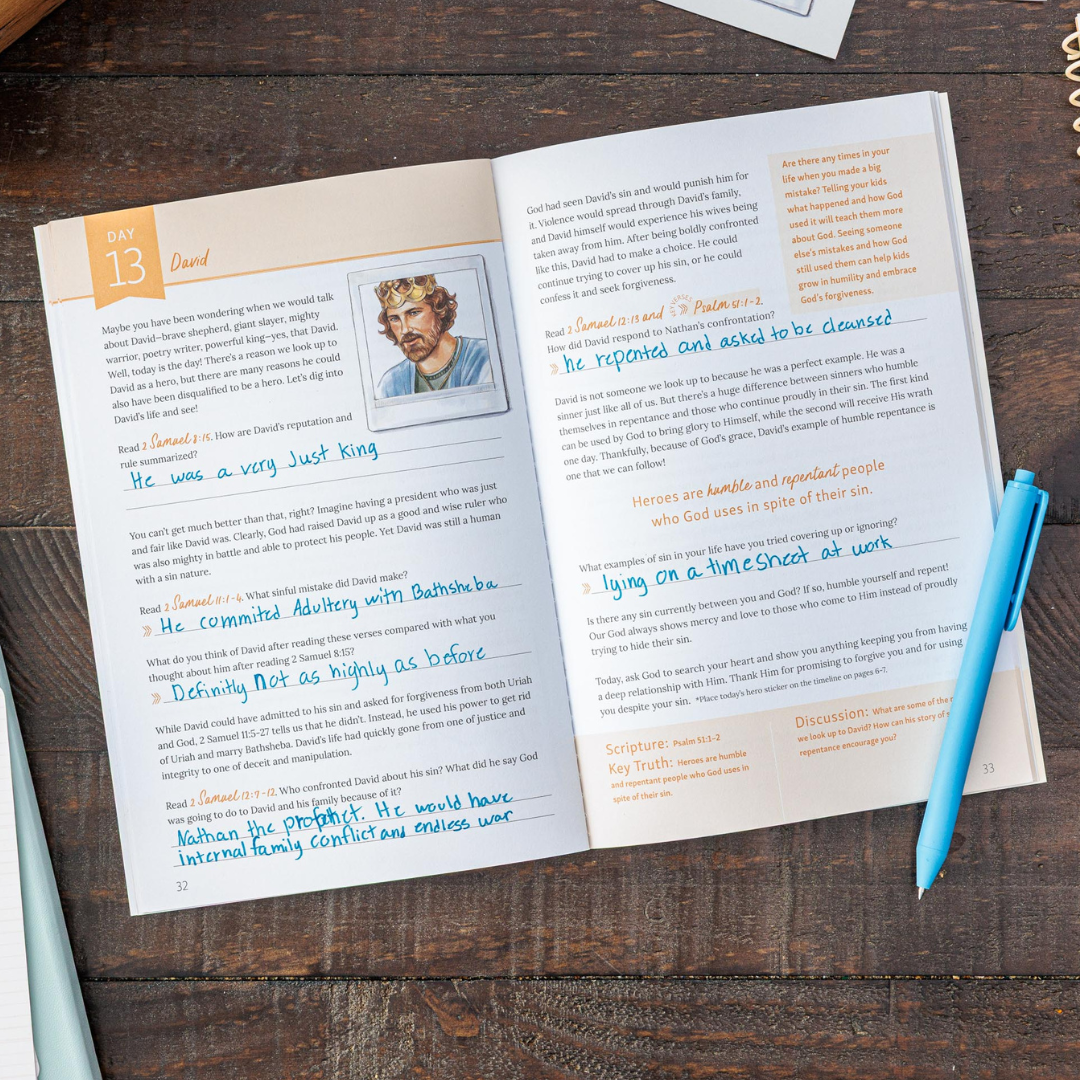 DAY
13
David
Maybe you have been wondering when we would talk
about David—brave shepherd, giant slayer, mighty
warrior, poetry writer, powerful king—yes, that David.
Well, today is the day! There's a reason we look up to
David as a hero, but there are many reasons he could
also have been disqualified to be a hero. Let's dig into
David's life and see!
Read 2 Samuel 8:15. How are David's reputation and
rule summarized?
He was a very Just king
You can't get much better than that, right? Imagine having a president who was just
and fair like David was. Clearly, God had raised David up as a good and wise ruler who
was also mighty in battle and able to protect his people. Yet David was still a human
with a sin nature.
Read 2 Samuel 11:1-4. What sinful mistake did David make?
He commited Adultery with Bathsheba
What do you think of David after reading these verses compared with what you
thought about him after reading 2 Samuel 8:15?
Definitly not as highly as before
While David could have admitted to his sin and asked for forgiveness from both Uriah
and God, 2 Samuel 11:5-27 tells us that he didn't. Instead, he used his power to get rid
of Uriah and marry Bathsheba. David's life had quickly gone from one of justice and
integrity to one of deceit and manipulation.
Read 2 Samuel 12:7-12. Who confronted David about his sin? What did he say God
was going to do to David and his family because of it?
Nathan the prophet. He would have
internal family conflict and endless war
32
God had seen David's sin and would punish him for
it. Violence would spread through David's family,
and David himself would experience his wives being
taken away from him. After being boldly confronted
like this, David had to make a choice. He could
continue trying to cover up his sin, or he could
confess it and seek forgiveness.
Are there any times in your
life when you made a big
mistake? Telling your kids
what happened and how God
used it will teach them more
about God. Seeing someone
else's mistakes and how God
still used them can help kids
grow in humility and embrace
God's forgiveness.
Read 2 Samuel 12:13 and Psalm 51:1-2.
How did David respond to Nathan's confrontation?
he repented and asked to be cleansed
David is not someone we look up to because he was a perfect example. He was a
sinner just like all of us. But there's a huge difference between sinners who humble
themselves in repentance and those who continue proudly in their sin. The first kind
can be used by God to bring glory to Himself, while the second will receive His wrath
one day. Thankfully, because of God's grace, David's example of humble repentance is
one that we can follow!
Heroes are humble and repentant people
who God uses in spite of their sin.
What examples of sin in your life have you tried covering up or ignoring?
lying on a timesheet at work
Is there any sin currently between you and God? If so, humble yourself and repent!
Our God always shows mercy and love to those who come to Him instead of proudly
trying to hide their sin.
Today, ask God to search your heart and show you anything keeping you from having
a deep relationship with Him. Thank Him for promising to forgive you and for using
you despite your sin. *Place today's hero sticker on the timeline on pages 6-7.
Scripture: Psalm 51:1-2
Key Truth: Heroes are humble
and repentant people who God uses in
spite of their sin.
Discussion: What are some of the
we look up to David? How can his story of
repentance encourage you?
33